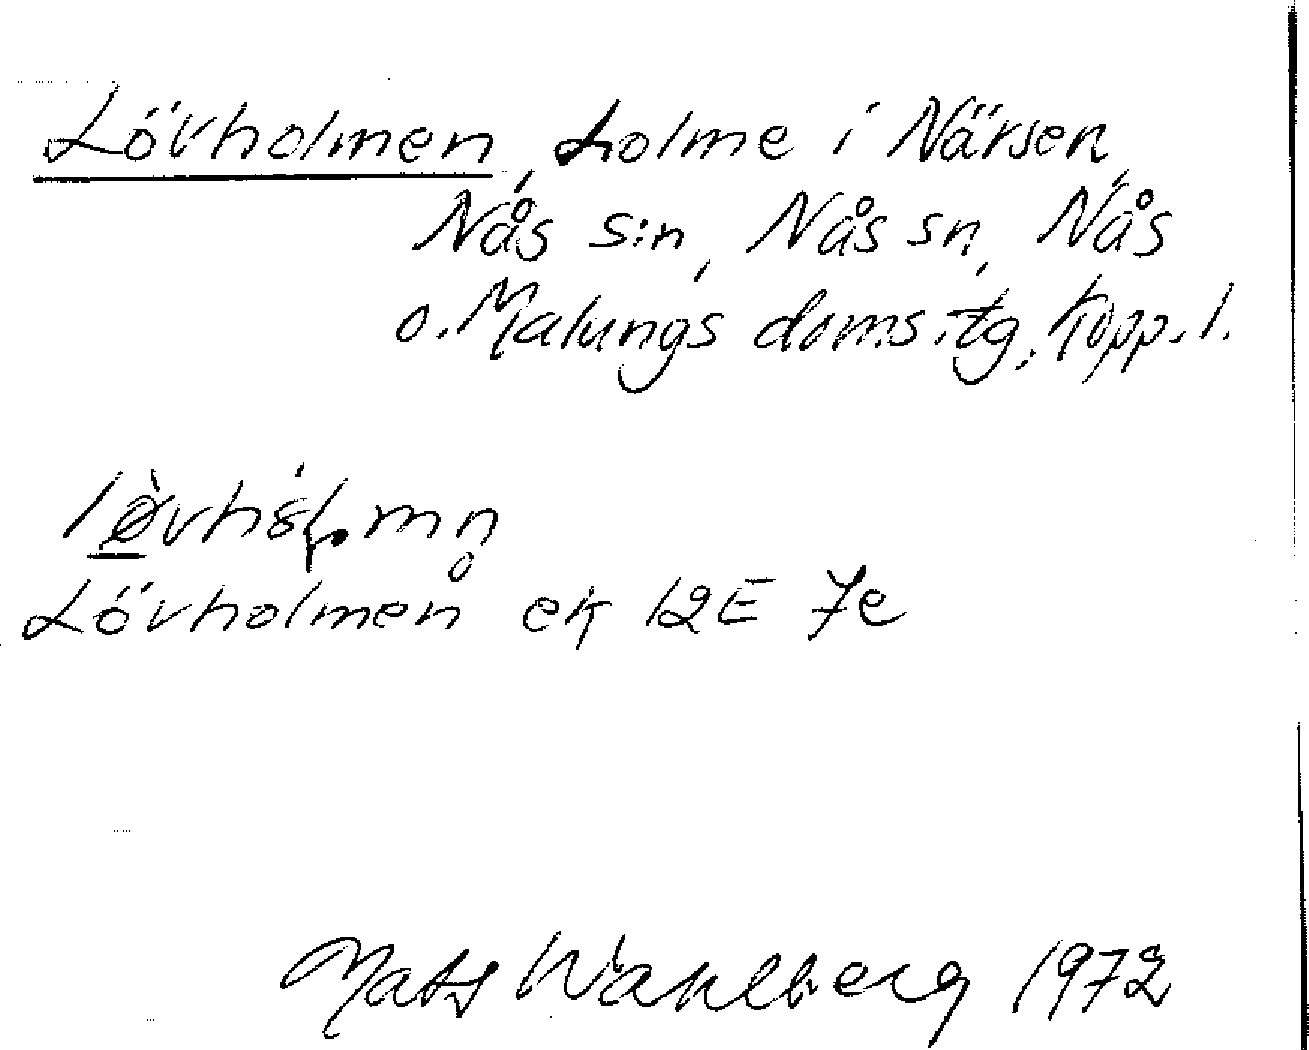 Lövholmen, holme i Närsen,
Nås s:n, Nås sn, Nås
o. Malungs doms.tg, Kopp. l.
Lövholmen ek 12E 7e
Mats Wahlberg 1972